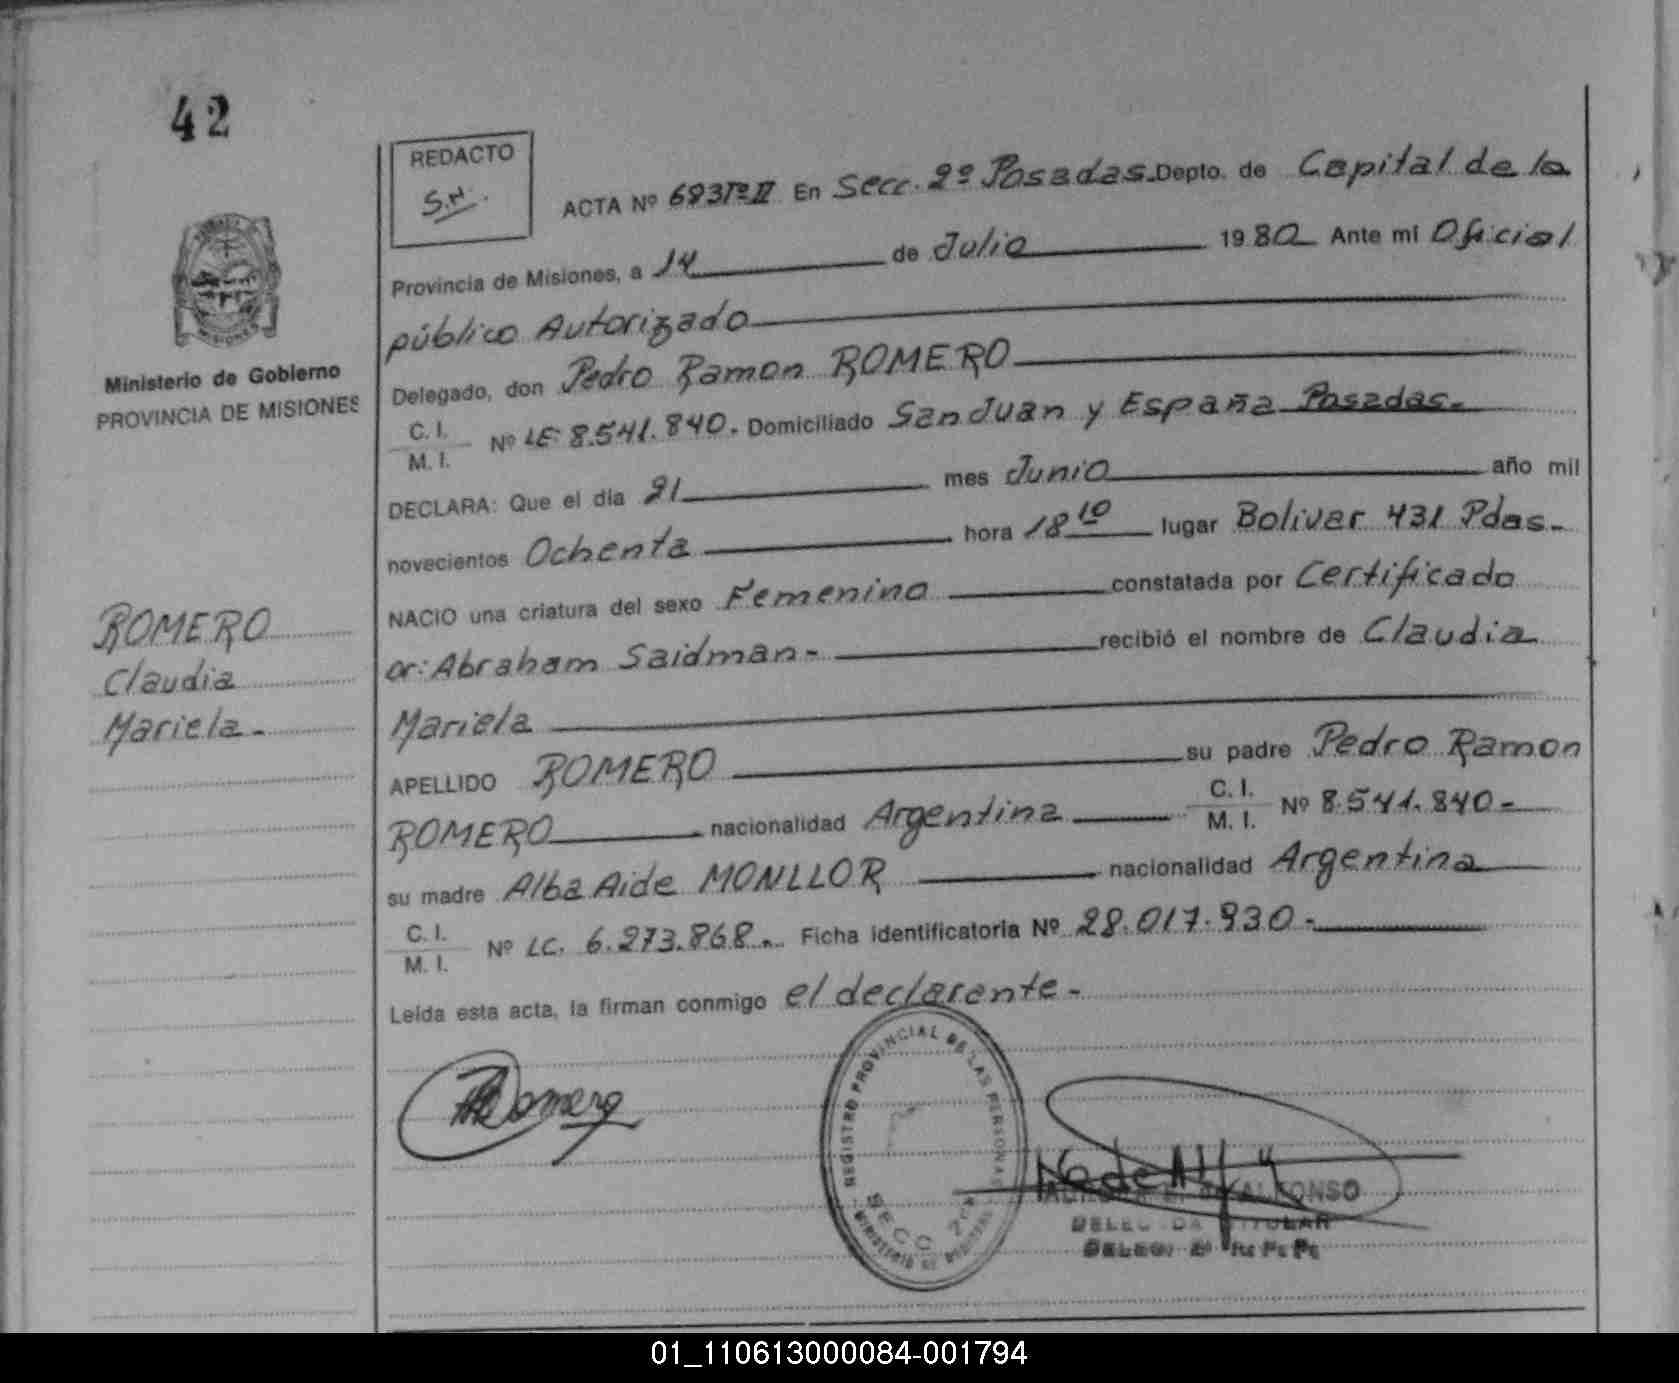 42
REDACTO
S.H.
ACTA Nº 693Tº II En Secc. 2º Posadas. Depto. de Capital de la
Provincia de Misiones, a 14 de Julio 1980 Ante mi Oficial
público Autorizado
Delegado, don Pedro Ramon ROMERO
C. I.
M. I. Nº LE: 8.541.840. Domiciliado San Juan y España Posadas.-
DECLARA: Que el día 21 mes Junio año mil
novecientos Ochenta hora 18 10 lugar Bolivar 431 Pdas.-
NACIO una criatura del sexo Femenino constatada por Certificado
or: Abraham Saidman.- recibió el nombre de Claudia
Mariela
APELLIDO ROMERO su padre Pedro Ramon
ROMERO nacionalidad Argentina C. I. M. I. Nº 8.541.840.-
su madre Alba Aide MONLLOR nacionalidad Argentina
C. I.
M. I. Nº LC. 6.273.868.- Ficha identificatoria Nº 28.017.930.-
Leída esta acta, la firman conmigo el declarente.-
Ministerio de Gobierno
PROVINCIA DE MISIONES
ROMERO
Claudia
Mariela.-
Romero
REGISTRO PROVINCIAL DE LAS PERSONAS
SECC 2da
MINISTERIO DE
ALFONSO
TITULAR
01_110613000084-001794